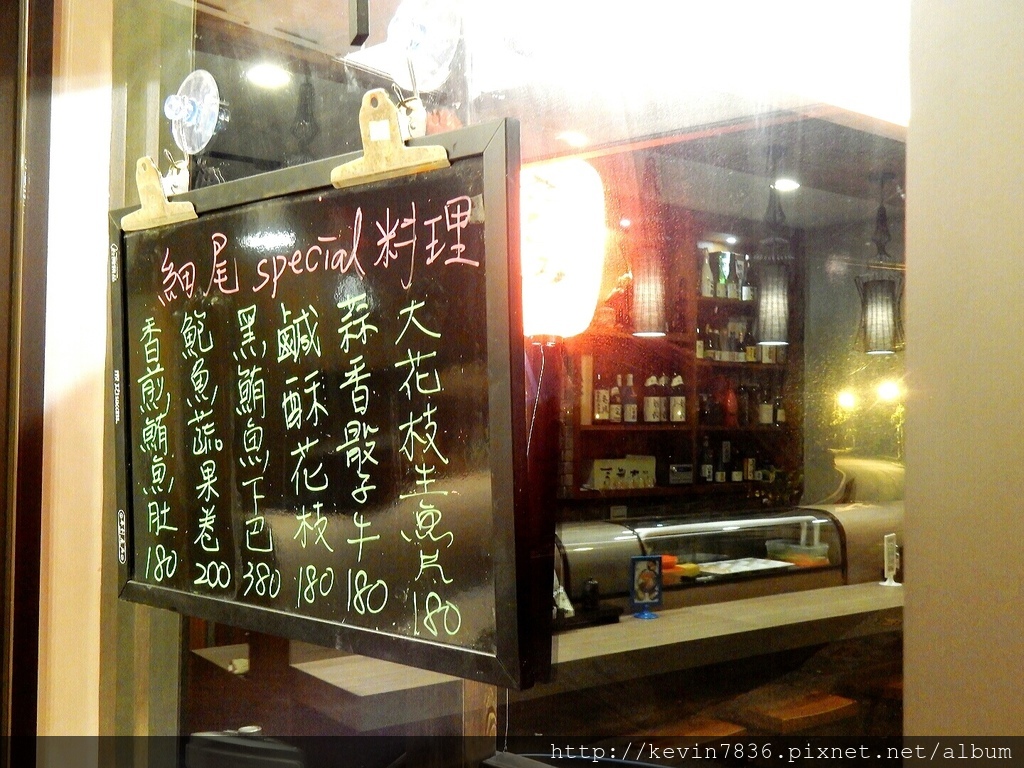 細尾special料理
大花枝生魚片180
蒜香骰子牛180
鹹酥花枝180
黑鮪魚下巴380
鮑魚蔬果卷200
香煎鮪魚肚180
http://kevin7836.pixnet.net/album